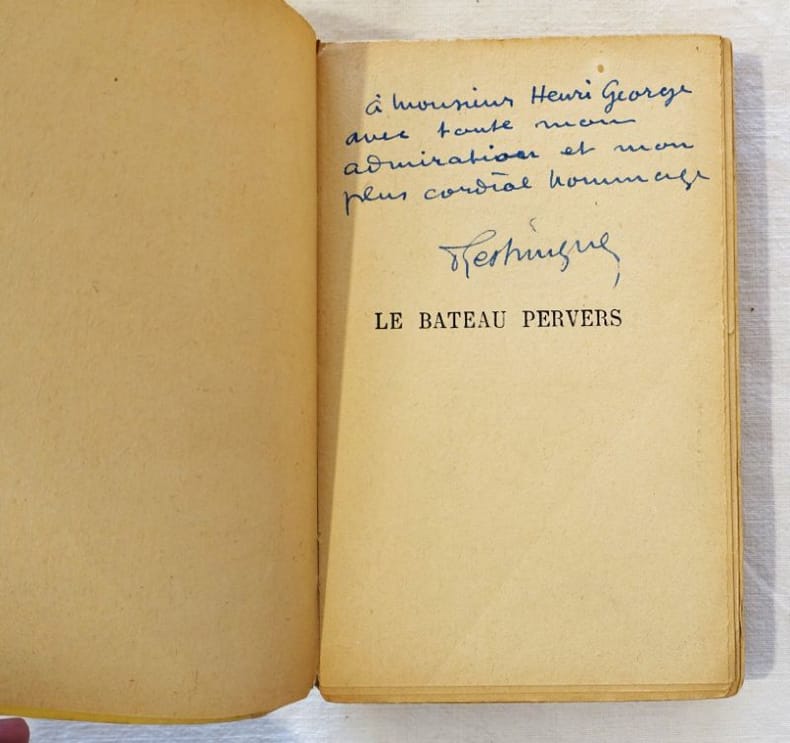 à Monsieur Henri George
avec toute mon
admiration et mon
plus cordial hommage
LE BATEAU PERVERS